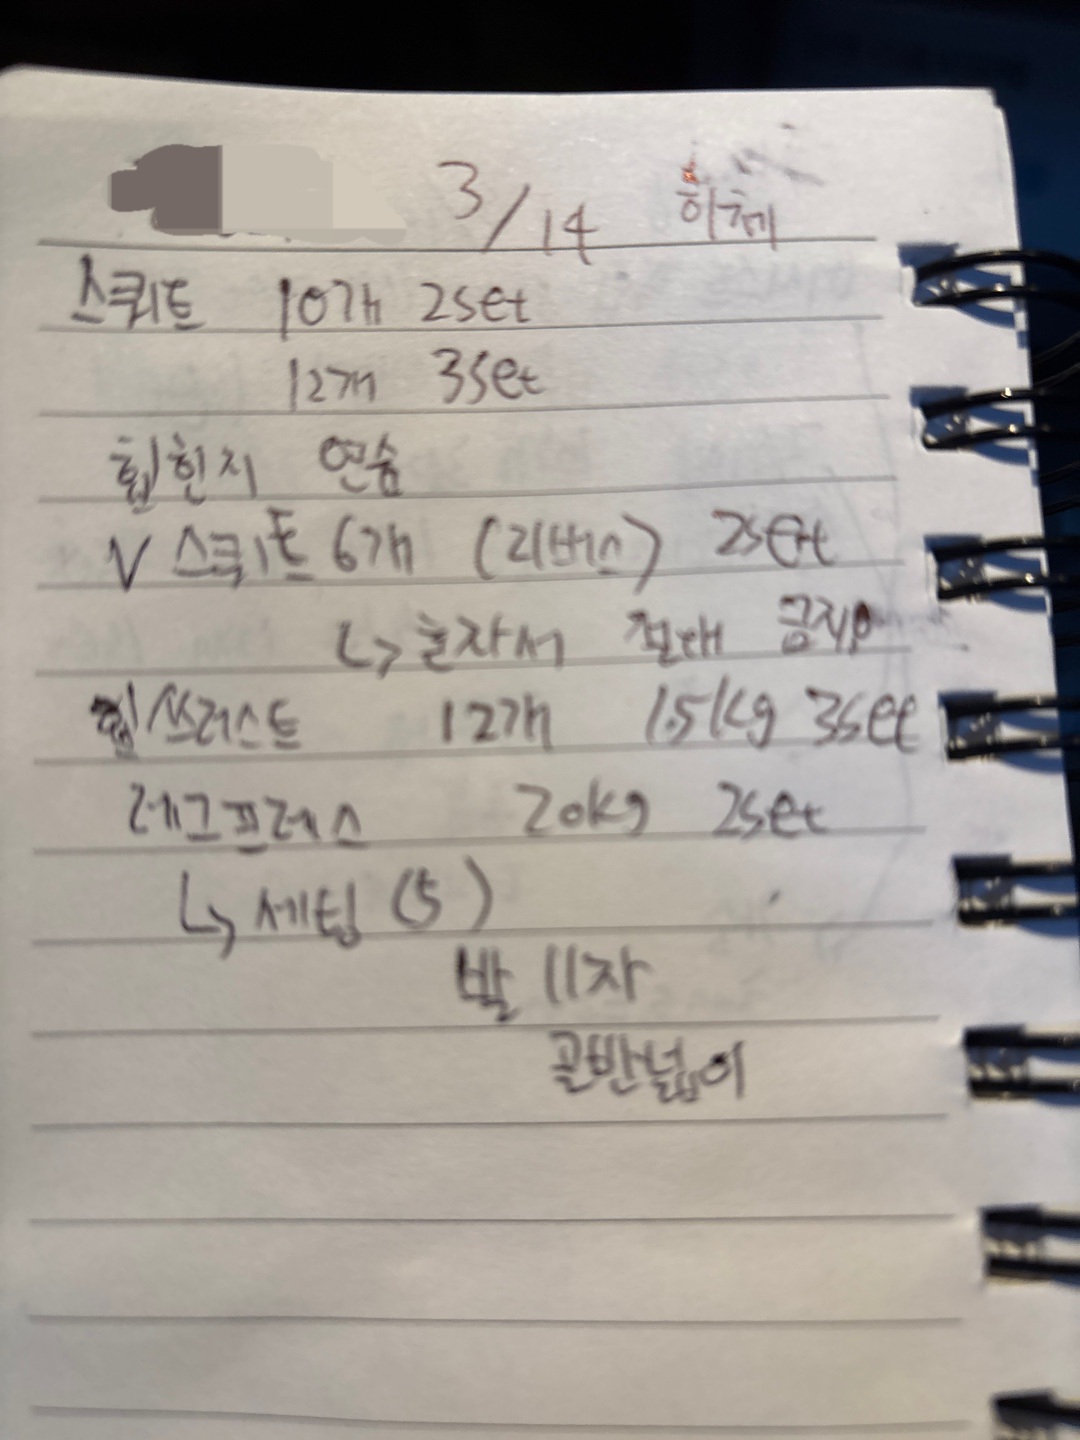 3/14 하체
스쿼트 10개 2set
12개 3set
힙힌지 연습
V 스쿼트 6개 (리버스) 2set
↳ 혼자서 절대 금지
힙쓰러스트 12개 1.5kg 3set
레그프레스 20kg 2set
↳ 세팅 (5)
발 11자
골반넓이